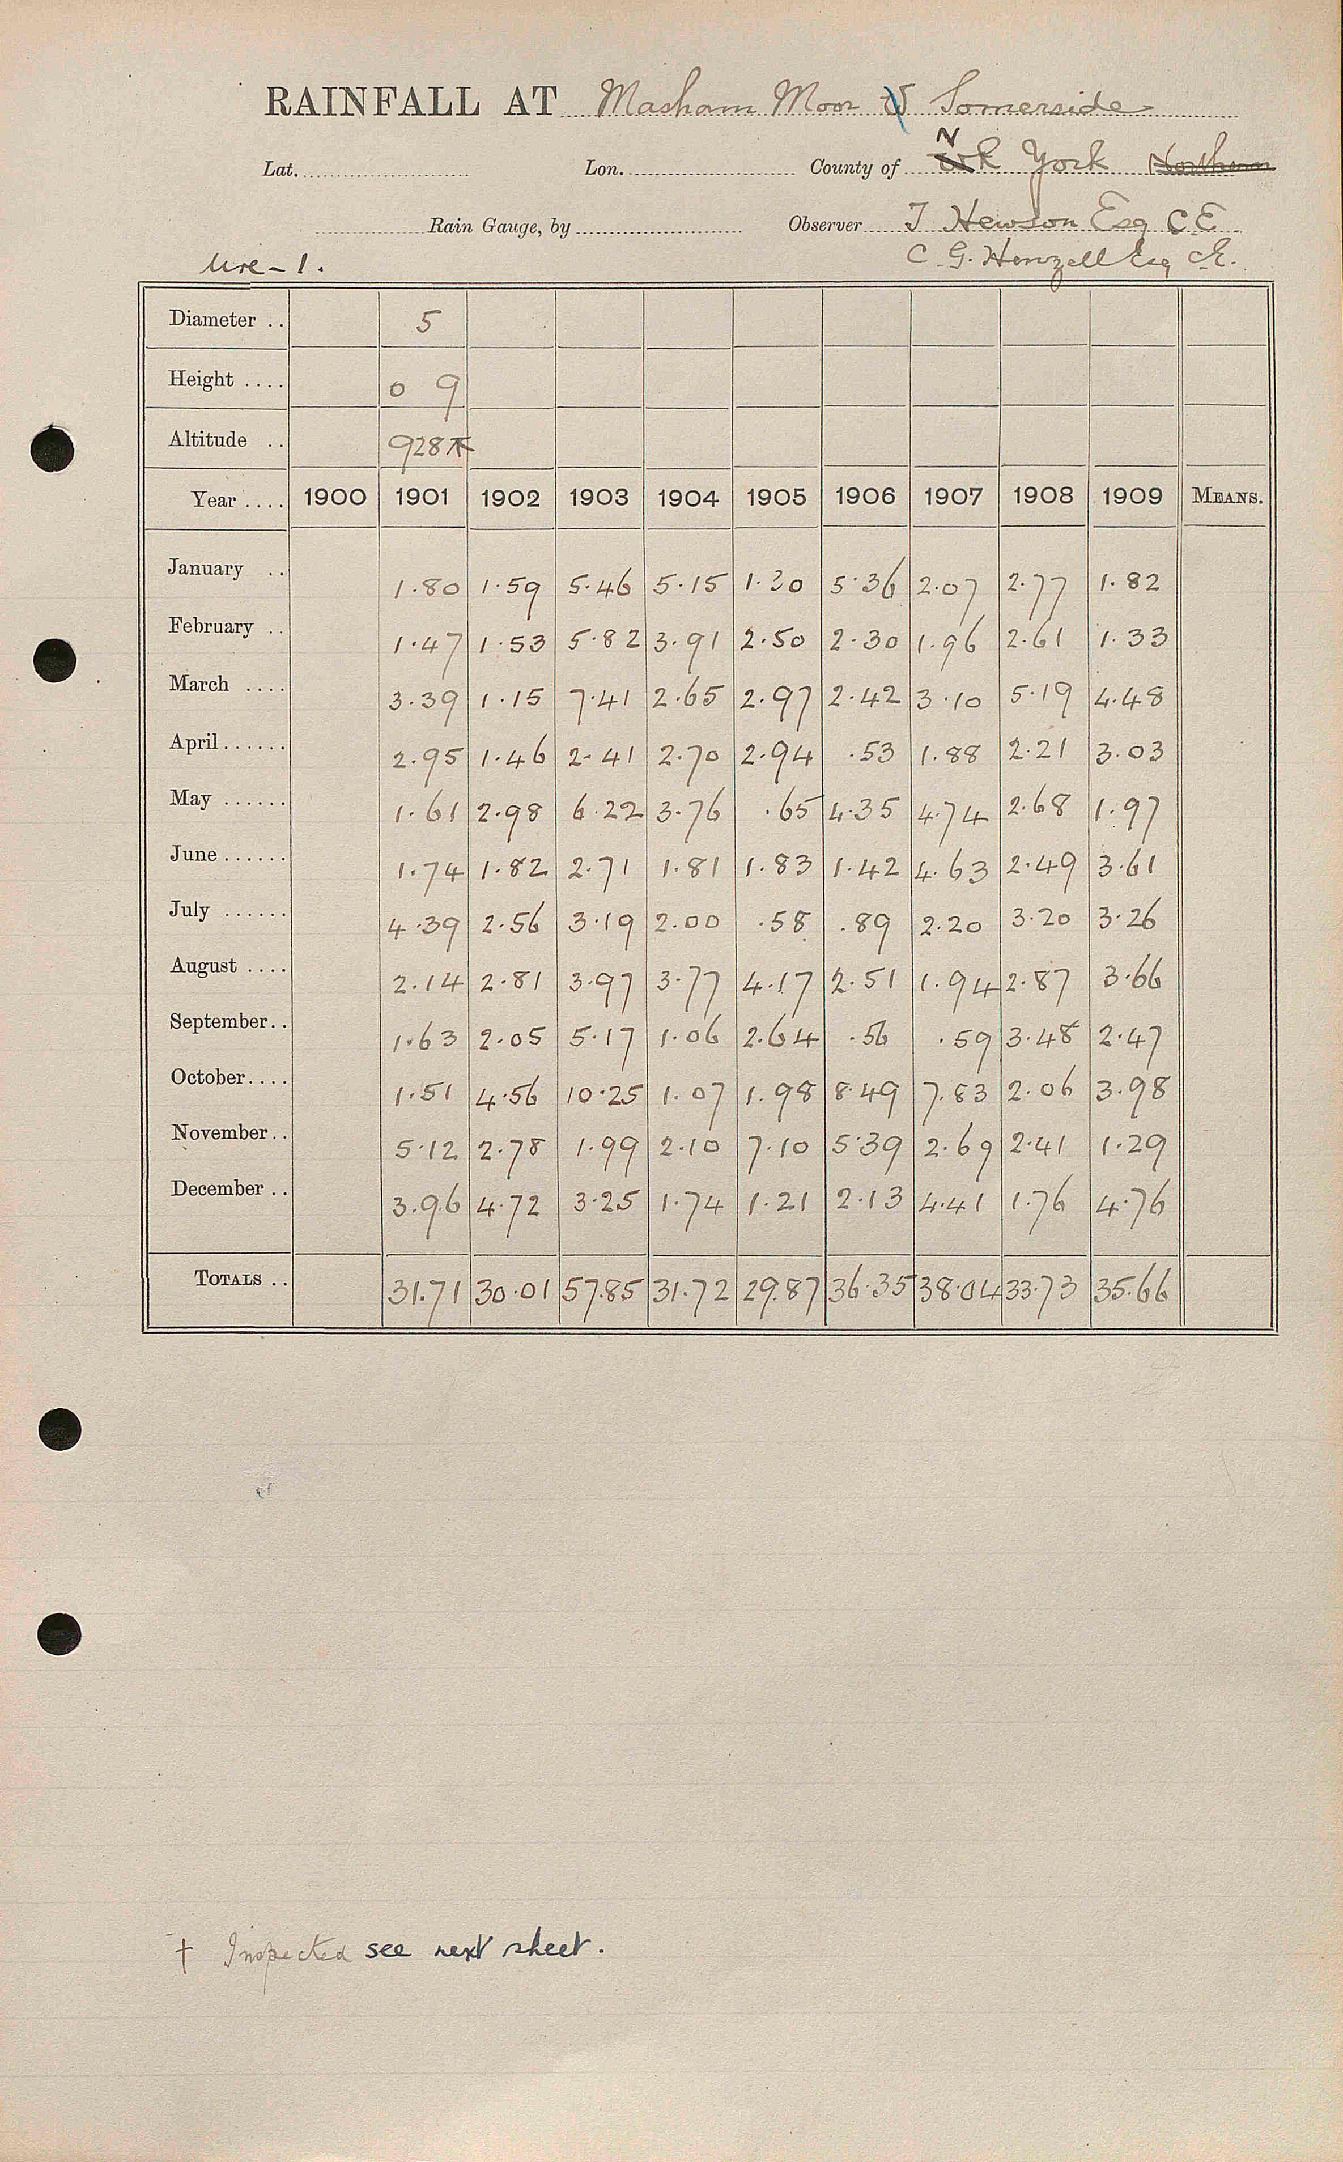 RAINFALL AT Masham Moor V Somerside
Lat. Lon. County of N York Northern
Rain Gauge, by Observer T Hewson Esq C E
Ure - 1. C. G. Henzell Esq C.E.
Diameter .. 5
Height .... 0 9
Altitude .. 928
Year .... 1900 1901 1902 1903 1904 1905 1906 1907 1908 1909 MEANS.
January .. 1.80 1.59 5.46 5.15 1.30 5.36 2.07 2.77 1.82
February .. 1.47 1.53 5.82 3.91 2.50 2.30 1.96 2.61 1.33
March .... 3.39 1.15 7.41 2.65 2.97 2.42 3.10 5.19 4.48
April ...... 2.95 1.46 2.41 2.70 2.94 .53 1.88 2.21 3.03
May ...... 1.61 2.98 6.22 3.76 .65 4.35 4.74 2.68 1.97
June ...... 1.74 1.82 2.71 1.81 1.83 1.42 4.63 2.49 3.61
July ...... 4.39 2.56 3.19 2.00 .58 .89 2.20 3.20 3.26
August .... 2.14 2.81 3.97 3.77 4.17 2.51 1.94 2.87 3.66
September .. 1.63 2.05 5.17 1.06 2.64 .56 .59 3.48 2.47
October .... 1.51 4.56 10.25 1.07 1.98 8.49 7.83 2.06 3.98
November .. 5.12 2.78 1.99 2.10 7.10 5.39 2.69 2.41 1.29
December .. 3.96 4.72 3.25 1.74 1.21 2.13 4.41 1.76 4.76
TOTALS .. 31.71 30.01 57.85 31.72 29.87 36.35 38.04 33.73 35.66
† Inspected see next sheet.